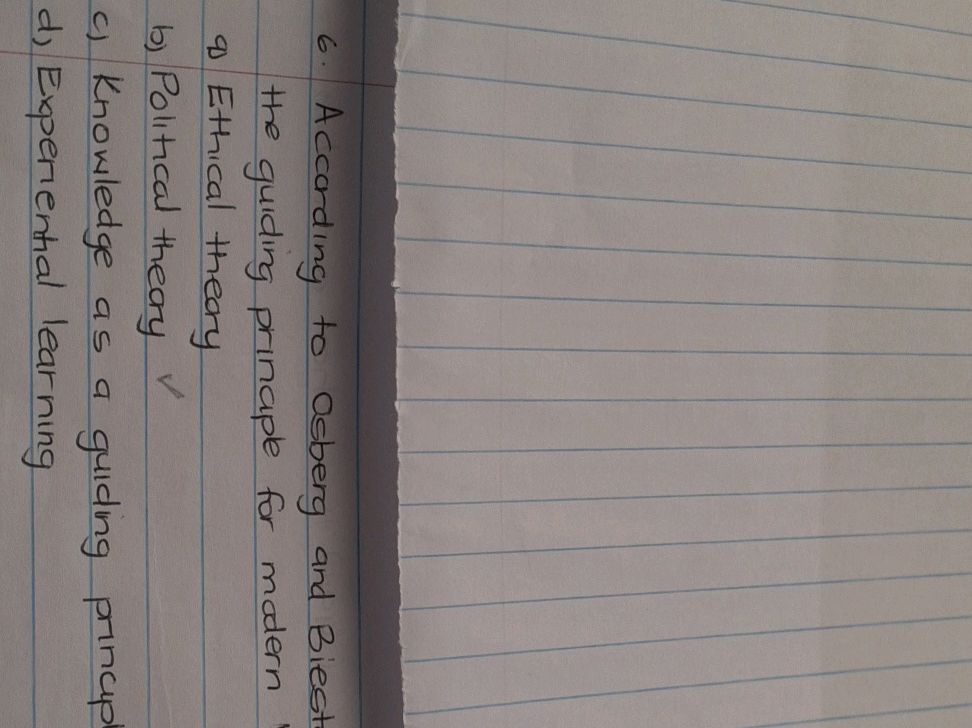 6. According to Osberg and Biest
the guiding principle for modern
a) Ethical theory
b) Political theory ✓
c) Knowledge as a guiding principl
d) Experiential learning